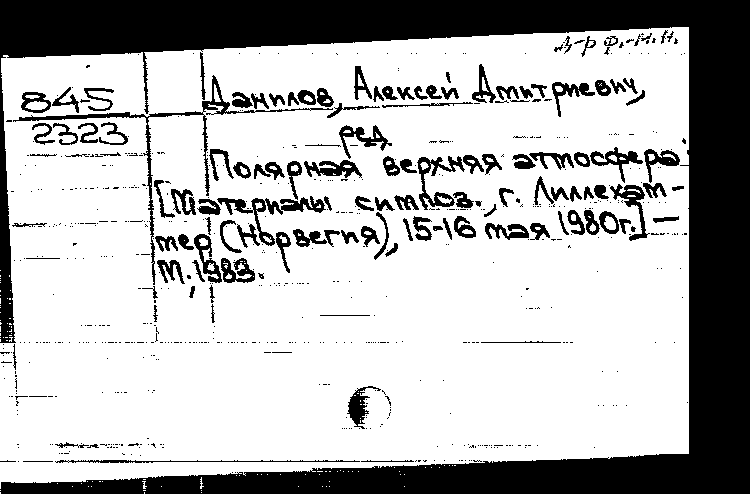 д-р ф.-м.н.
845
2323
Данилов, Алексей Дмитриевич,
ред
Полярная верхняя атмосфера:
[Материалы симпоз., г. Лиллехам-
мер (Норвегия), 15-16 мая 1980г.] —
М., 1983.